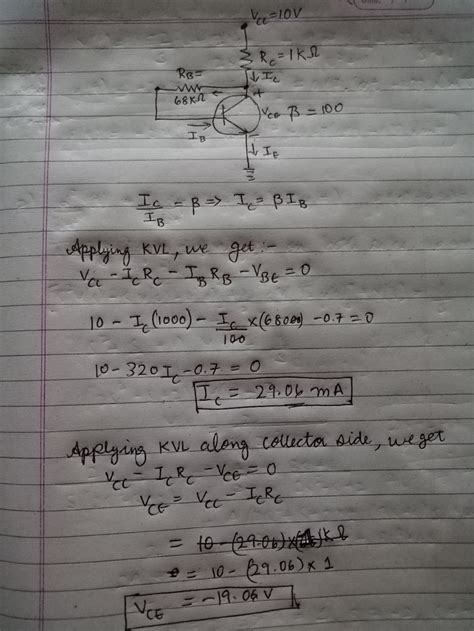 Vcc=10V
RC=1KΩ
RB=
68KΩ
IC
+
VCE β=100
IB
−
IE
IC/IB - β => IC = βIB
Applying KVL, we get :-
VCC - ICRC - IBRB - VBE = 0
10 - IC(1000) - IC/100 x(68000) - 0.7 = 0
10 - 320IC - 0.7 = 0
IC = 29.06 mA
Applying KVL along collector side, we get
VCC - ICRC - VCE = 0
VCE = VCC - ICRC
= 10 - (29.06) x 1KΩ
= 10 - (29.06) x 1
VCE = -19.06 V